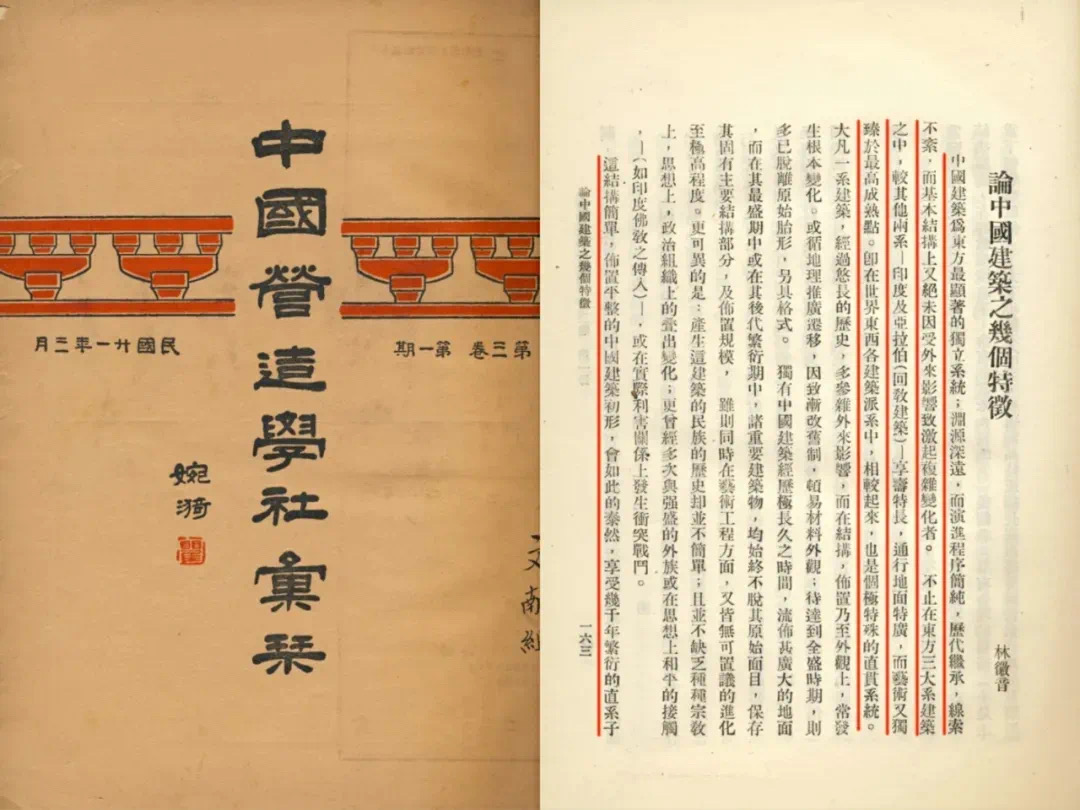 中國營造學社彙栞
民國廿一年三月
第三卷 第一期
婉漪
論中國建築之幾個特徵
林徽音
中國建築爲東方最顯著的獨立系統；淵源深遠，而演進程序簡純，歷代繼承，線索
不紊，而基本結搆上又絕未因受外來影響致激起複雜變化者。　不止在東方三大系建築
之中，較其他兩系—印度及亞拉伯(回敎建築)—享壽特長，通行地面特廣，而藝術又獨
臻於最高成熟點。卽在世界東西各建築派系中，相較起來，也是個極特殊的直貫系統。
大凡一系建築，經過悠長的歷史，多參雜外來影響，而在結搆，佈置乃至外觀上，常發
生根本變化。或循地理推廣遷移，因致漸改舊制，頓易材料外觀；待達到全盛時期，則
多已脫離原始胎形，另具格式。　獨有中國建築經歷極長久之時間，流佈甚廣大的地面
，而在其最盛期中或在其後代繁衍期中，諸重要建築物，均始終不脫其原始面目，保存
其固有主要結搆部分，及佈置規模，雖則同時在藝術工程方面，又皆無可置議的進化
至極高程度。更可異的是：產生這建築的民族的歷史却並不簡單；且並不缺乏種種宗敎
上，思想上，政治組織上的疊出變化；更曾經多次與强盛的外族或在思想上和平的接觸
，—(如印度佛敎之傳入)—，或在實際利害關係上發生衝突戰鬥。
這結搆簡單，佈置平整的中國建築初形，會如此的泰然，享受幾千年繁衍的直系子
論中國建築之幾個特徵
一六三